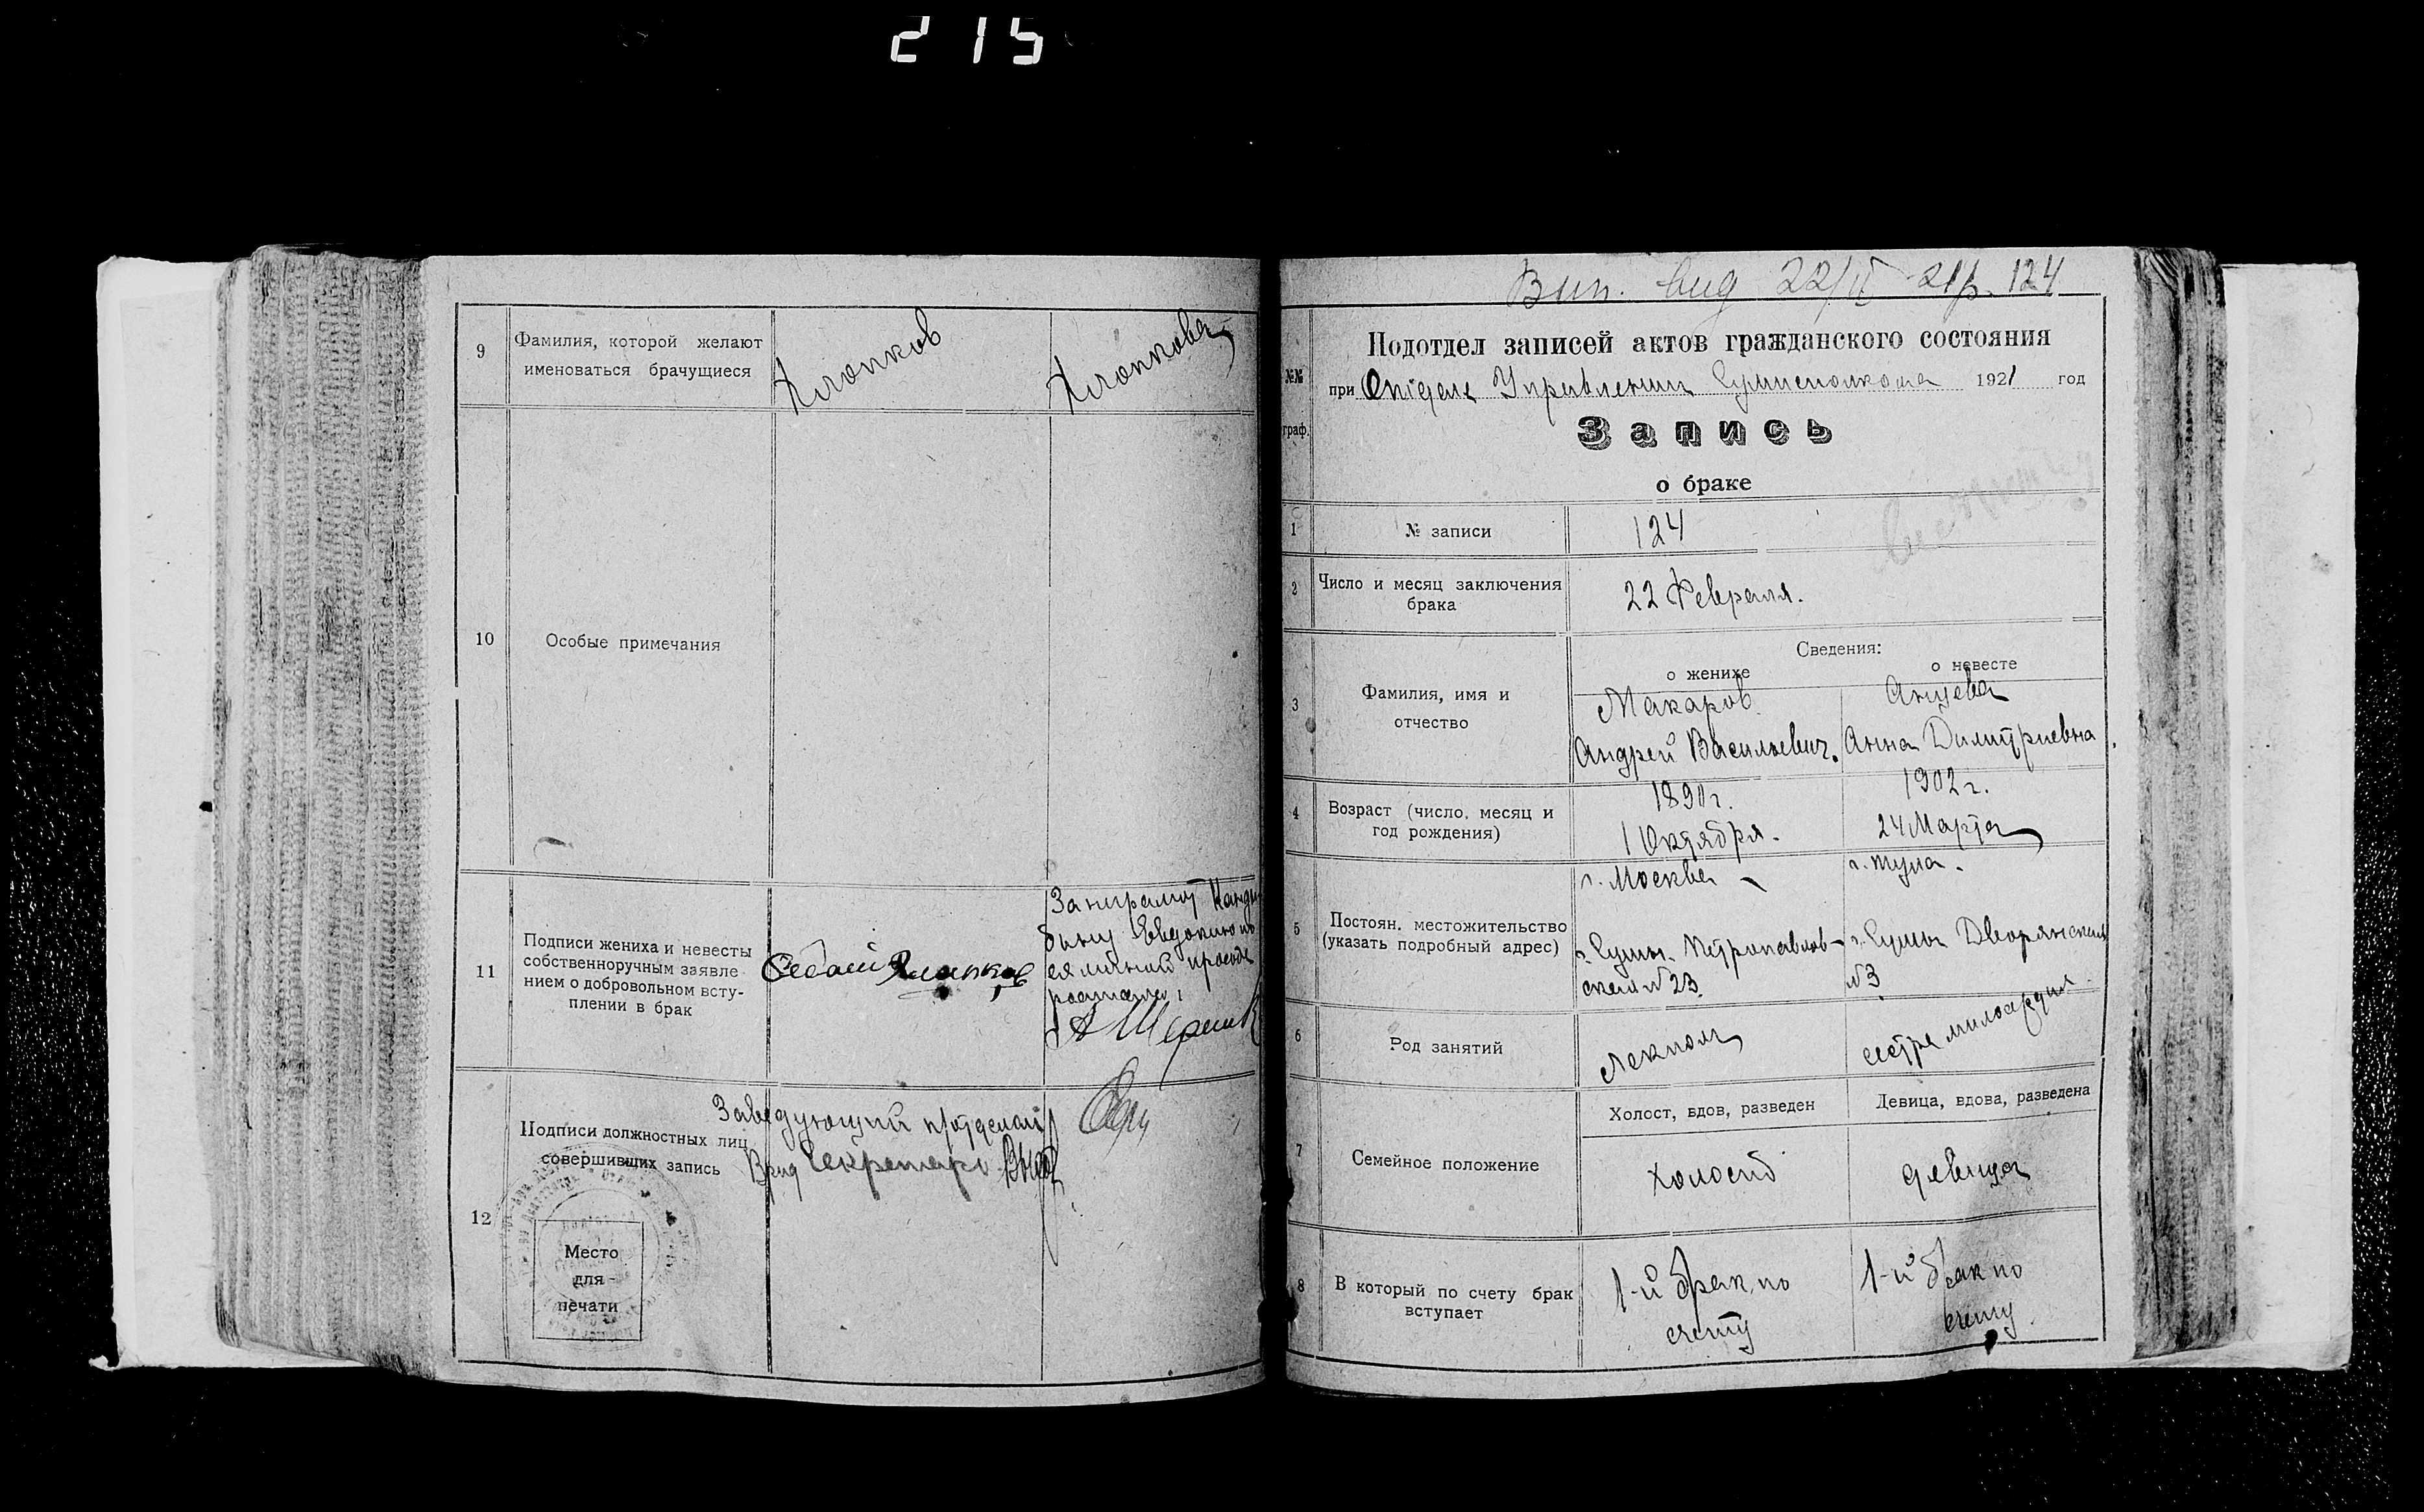 215
9
Фамилия, которой желают
именоваться брачущиеся
Хлопков
Хлопкова
10
Особые примечания
11
Подписи жениха и невесты
собственноручным заявле
нием о добровольном всту-
плении в брак
Хлопков
За неграмот Канди
бину Евдокию по
ея личной прозьбе
12
Подписи должностных лиц
совершивших запись
Заведующий п/отделом
Врид Секретаря
Место
для
печати
Вып. вид 22/II 21 г. 124
№№
граф.
Подотдел записей актов гражданского состояния
при Отделе Управления Сумисполкома 1921 год
Запись
о браке
1
№ записи
124
2
Число и месяц заключения
брака
22 Февраля.
3
Фамилия, имя и
отчество
Сведения:
о женихе
о невесте
Макаров
Андрей Васильевич.
Анна Димитриевна
4
Возраст (число, месяц и
год рождения)
1890 г.
1 Октября.
1902 г.
24 Марта
5
Постоян. местожительство
(указать подробный адрес)
г. Москва
г. Сумы. Петропавлов-
ская № 23.
г. Тула.
г. Сумы Дворянская
№ 3
6
Род занятий
Лекпом
сестра милосердия
7
Семейное положение
Холост, вдов, разведен
Девица, вдова, разведена
холост
девица
8
В который по счету брак
вступает
1-й брак по
счету
1-й брак по
счету